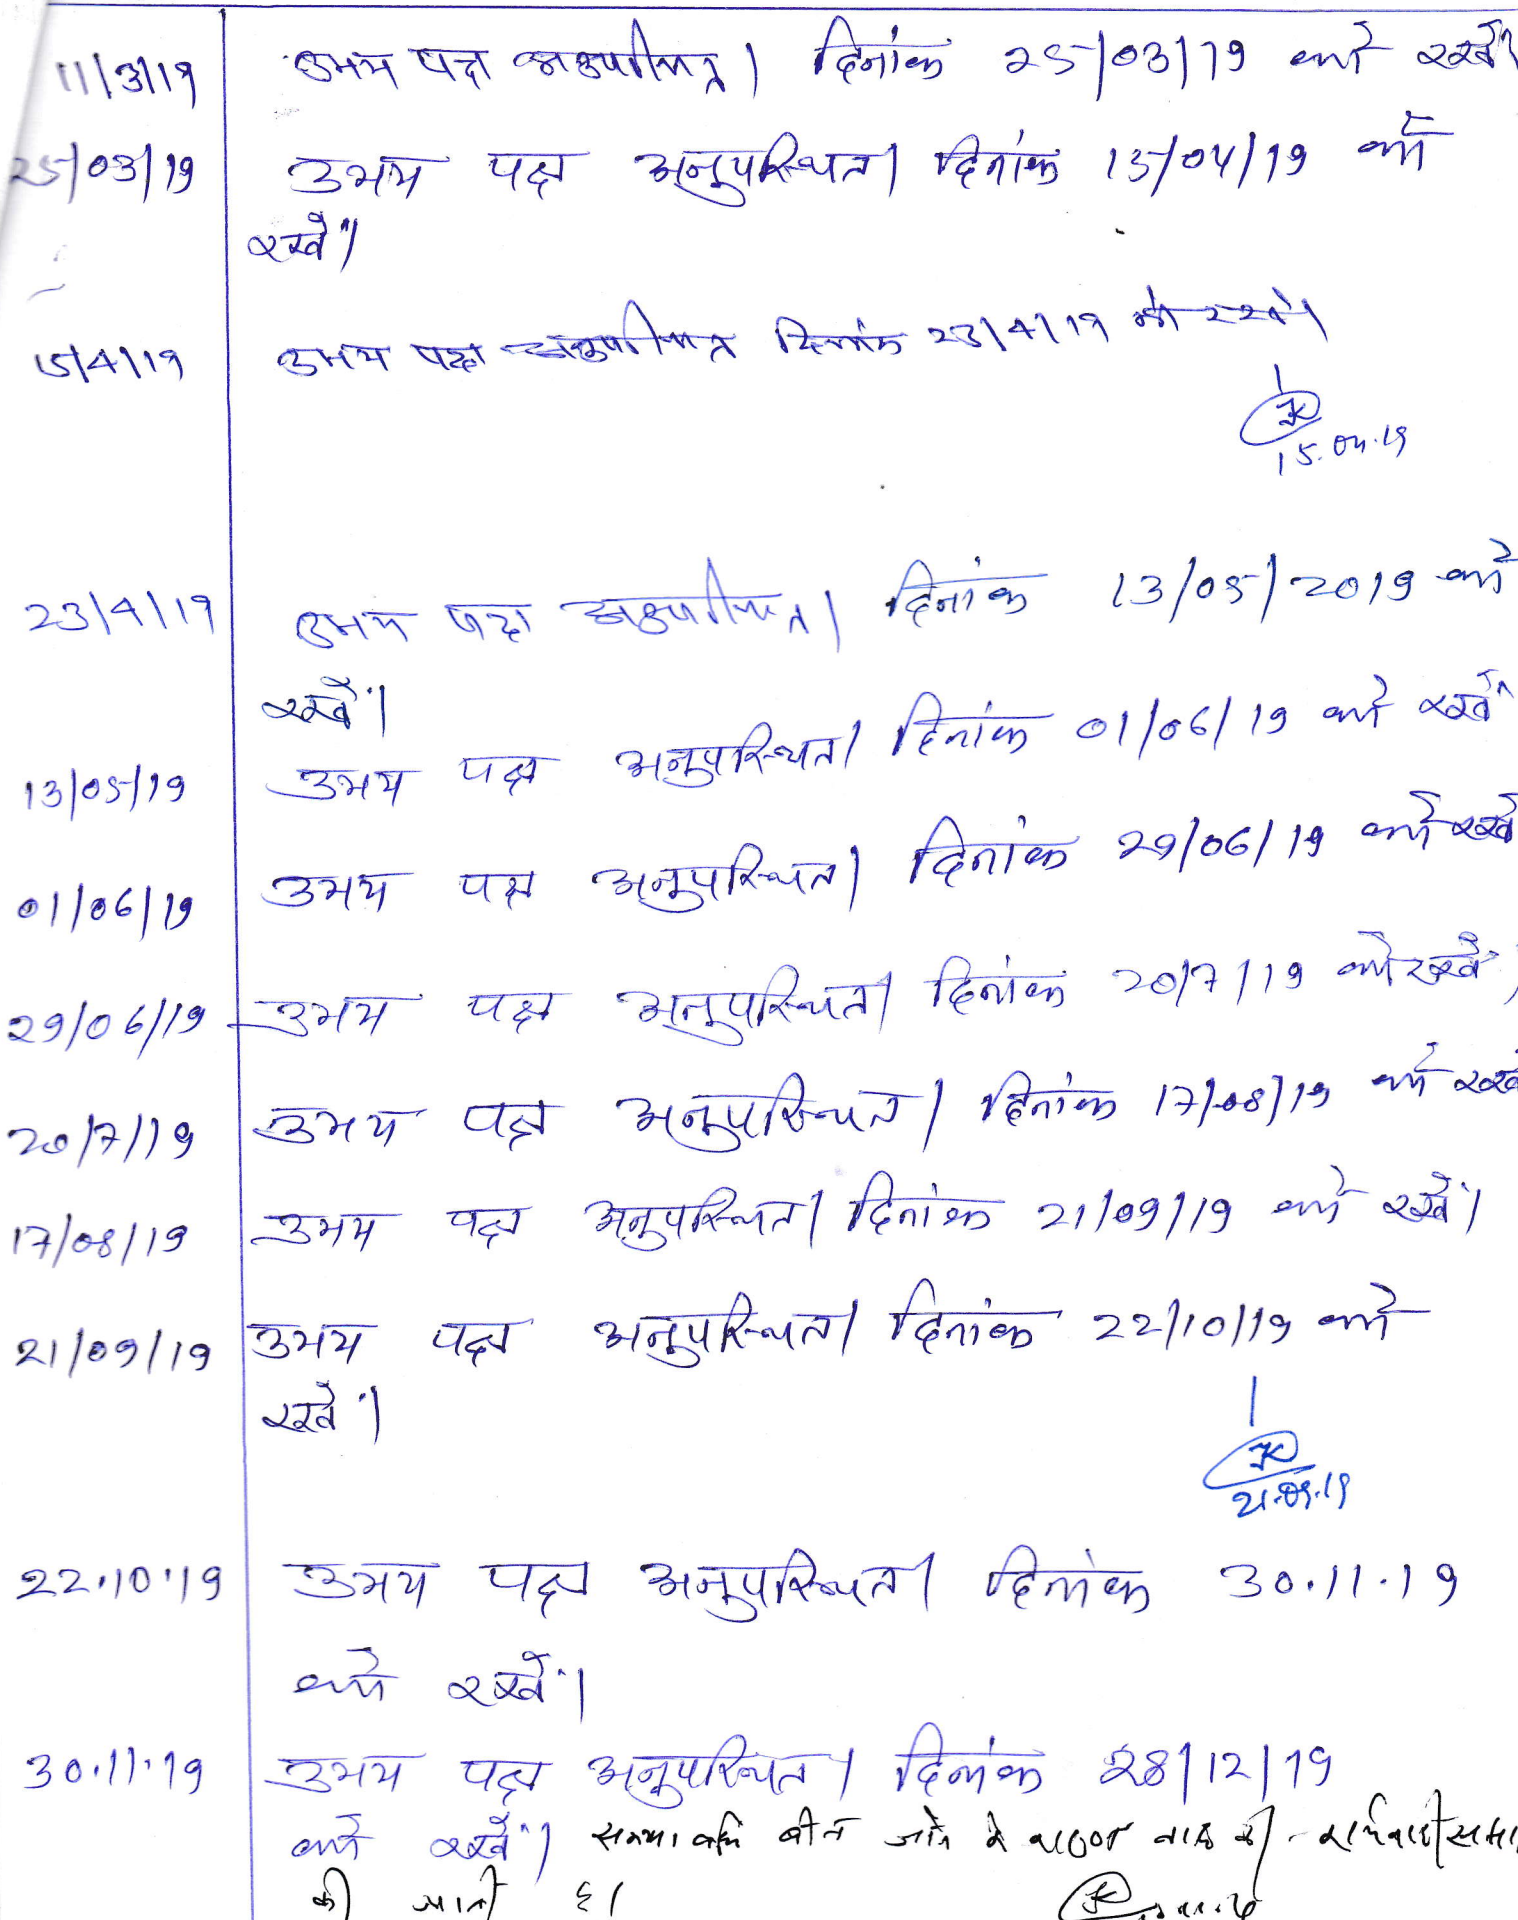 11/3/19 उभय पक्ष अनुपस्थित। दिनांक 25/03/19 को रखें।
25/03/19 उभय पक्ष अनुपस्थित। दिनांक 15/04/19 को
रखें।
15/4/19 उभय पक्ष अनुपस्थित दिनांक 23/4/19 को रखें।
15.04.19
23/4/19 उभय पक्ष अनुपस्थित। दिनांक 13/05/2019 को
रखें।
13/05/19 उभय पक्ष अनुपस्थित। दिनांक 01/06/19 को रखें
01/06/19 उभय पक्ष अनुपस्थित। दिनांक 29/06/19 को रखें
29/06/19 उभय पक्ष अनुपस्थित। दिनांक 20/7/19 को रखें।
20/7/19 उभय पक्ष अनुपस्थित। दिनांक 17/08/19 को रखें
17/08/19 उभय पक्ष अनुपस्थित। दिनांक 21/09/19 को रखें।
21/09/19 उभय पक्ष अनुपस्थित। दिनांक 22/10/19 को
रखें।
21.09.19
22.10.19 उभय पक्ष अनुपस्थित। दिनांक 30.11.19
को रखें।
30.11.19 उभय पक्ष अनुपस्थित। दिनांक 28/12/19
को रखें। समयावधि बीत जाने के कारण वाद की कार्यवाही
की जाती है।